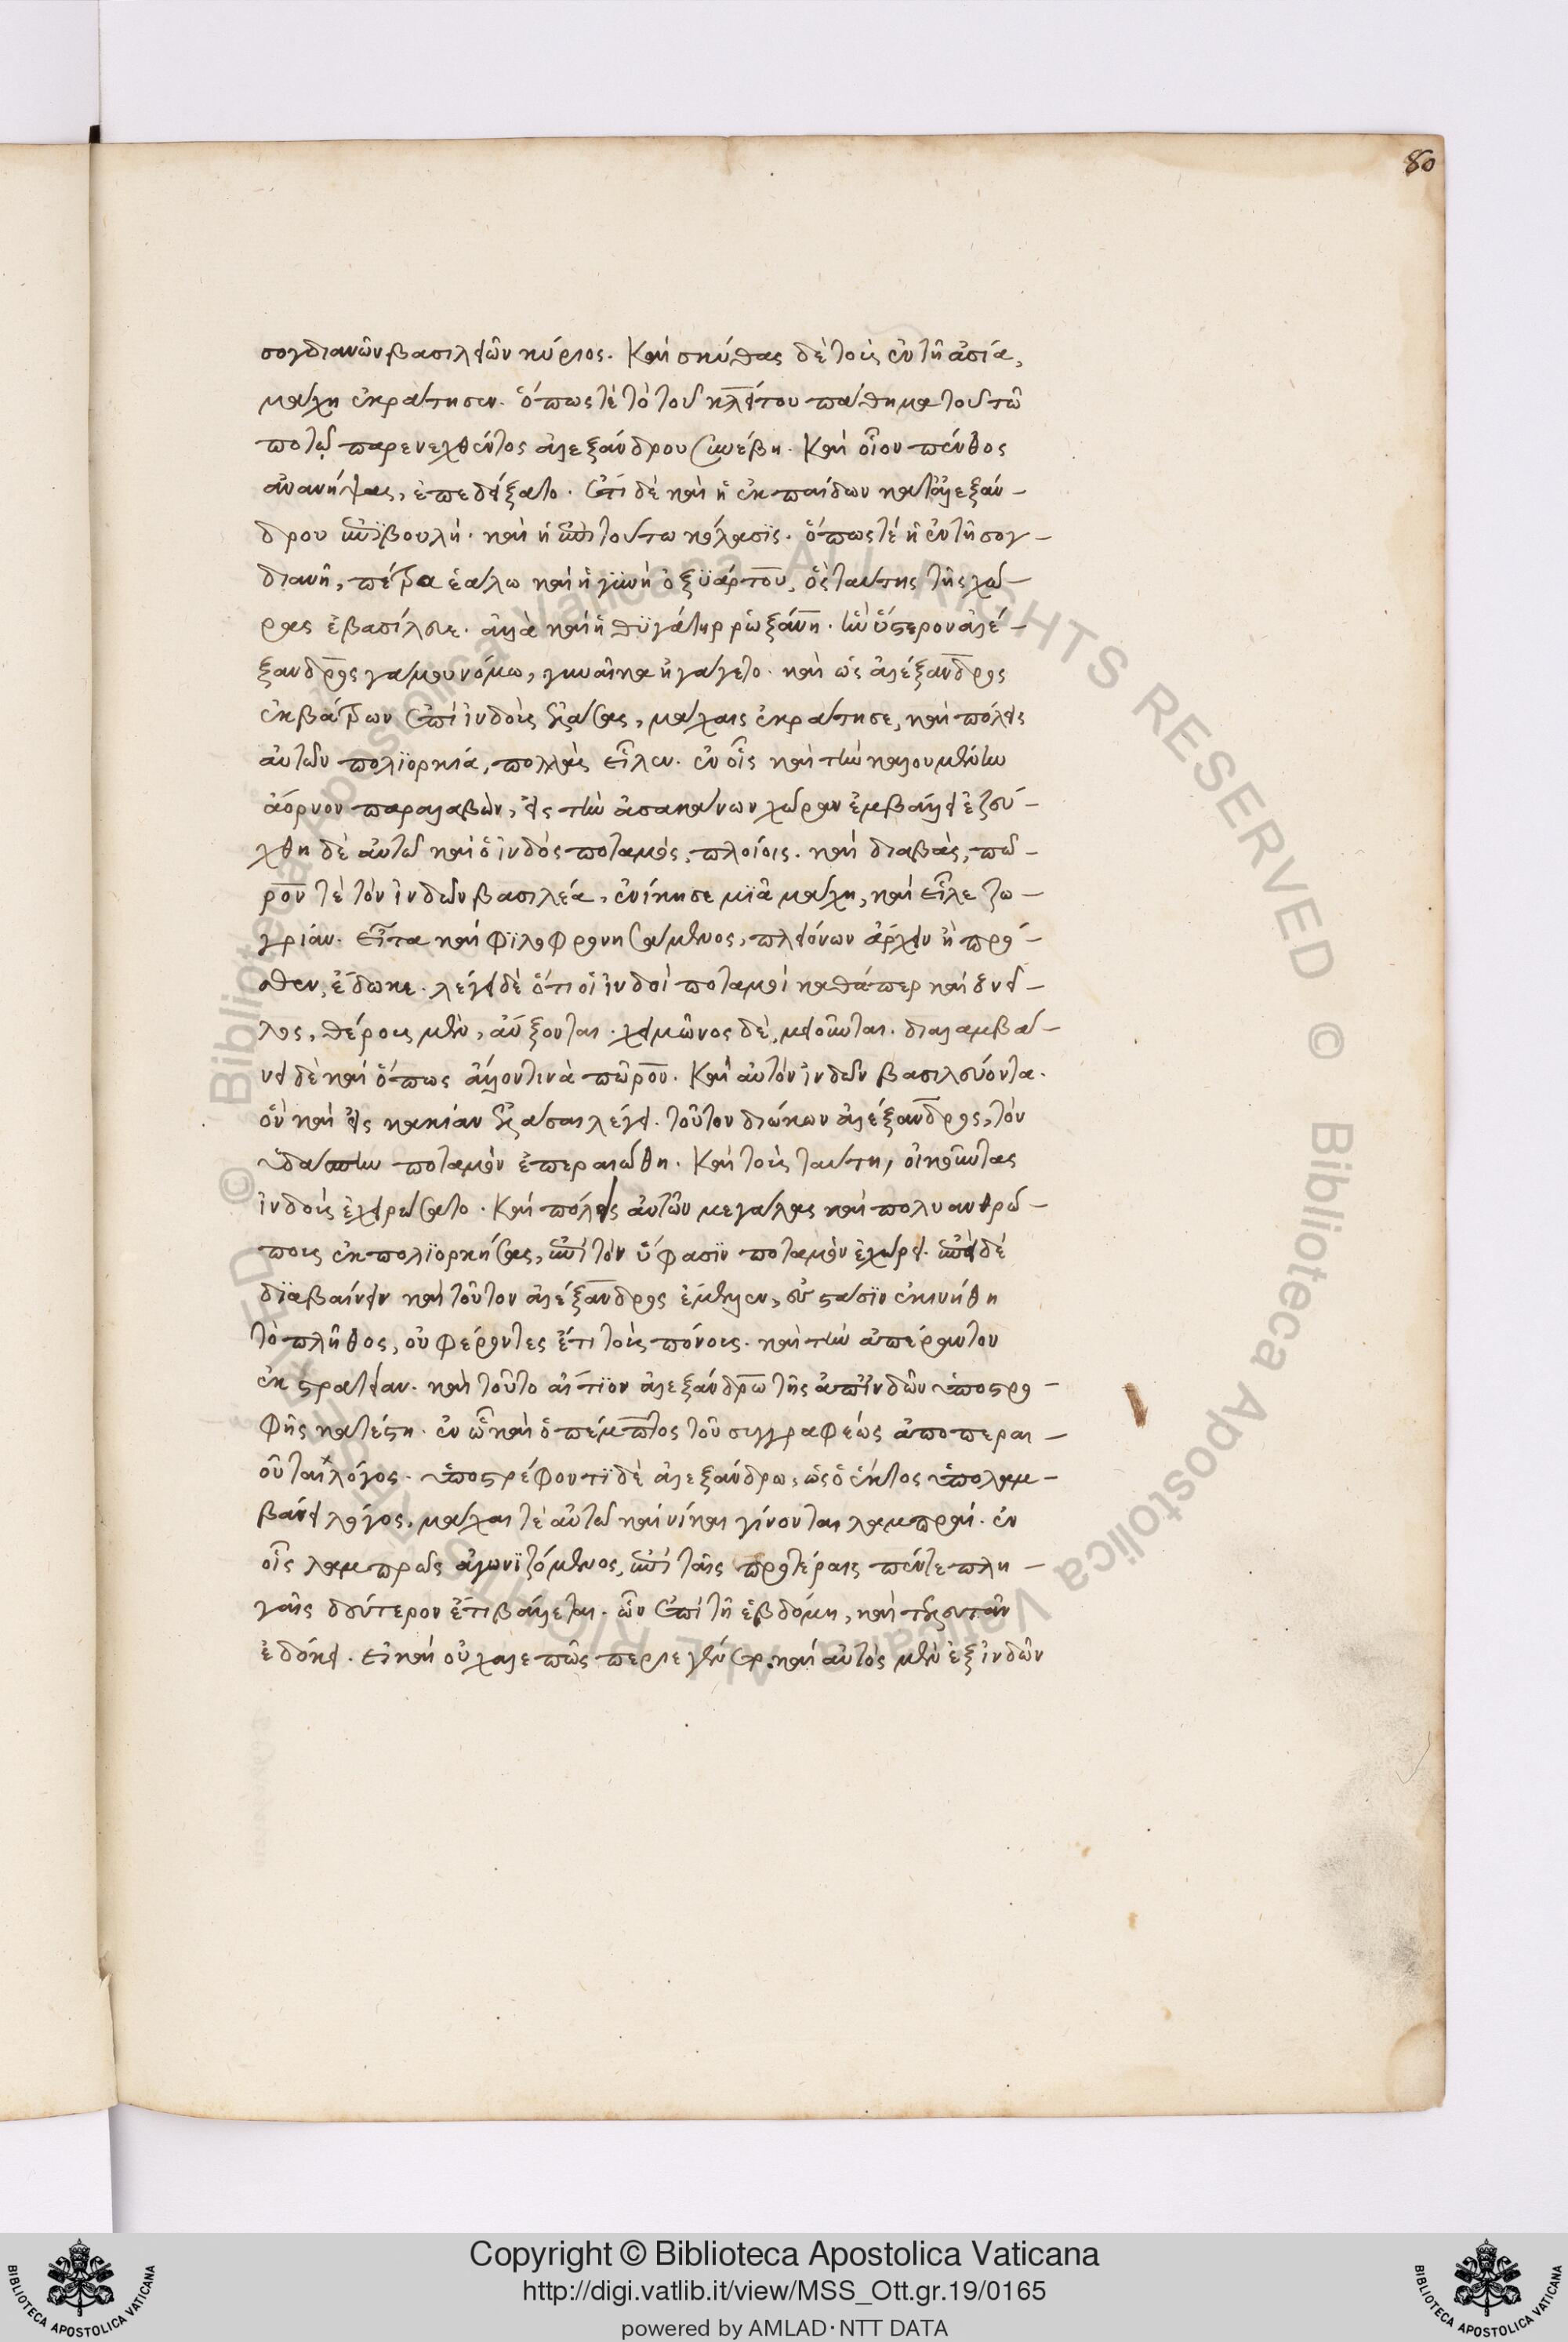 80
σογδιανῶν βασιλείων κύριος. Καὶ σκύθας δὲ τοὺς ἐν τῆ ἀσία,
μάχη ἐκράτησεν. ὅπως τὲ τὸ τοῦ κλείτου πάθημα τοῦ τῶ
πότω παρενεχθέντος ἀλεξάνδρου συνέβη. Καὶ οἷον πένθος
ἀνανήψας, ἐπεδείξατο. ἔτι δὲ καὶ ἡ ἐκ παίδων κατ' ἀλεξάν-
δρου ἐπϊβουλή. καὶ ἡ ἐπὶ τούτω κόλασϊς. ὅπως τέ ἡ ἐν τῆ σογ-
διανῆ, πέτρα ἑάλω καὶ ἡ γϋνὴ ὀξϋάρτου, ὃς ταύτης τῆς χώ-
ρας ἐβασίλευε. ἀλλὰ καὶ ἡ θϋγάτηρ ῥωξάνη. ἣν ὕστερον ἀλέ-
ξανδρος γάμου νόμω, γυναῖκα ἠγάγετο. καὶ ὡς ἀλέξανδρος
ἐκ βάτρων ἐπὶ ἰνδοὺς ἐλάσας, μάχαις ἐκράτησε, καὶ πόλεις
αὐτῶν πολϊορκία, πολλὰς εἷλεν. ἐν οἷς καὶ τὴν καλουμένην
ἄορνον παραλαβὼν, εἰς τὴν ἀσακάνων χώραν ἐμβάλλει ἐζεύ-
χθη δὲ αὐτῶ καὶ ὁ ἰνδὸς ποταμὸς, πλοίοις. καὶ διαβὰς, πώ-
ρον τὲ τὸν ἰνδῶν βασιλέα, ἐνίκησε μϊᾶ μάχη, καὶ εἷλε ζω-
γρίαν. εἶτα καὶ φϊλοφρονησάμενος, πλειόνων ἄρχειν ἢ πρό-
σθεν, ἔδωκε. λέγει δὲ ὅτι οἱ ἰνδοὶ ποταμοὶ καθάπερ καὶ ὁ νεῖ-
λος, θέρους μὲν, αὔξονται. χειμῶνος δὲ, μειοῦνται. διαλαμβά-
νει δὲ καὶ ὅπως ἄλλον τινὰ πῶρον. Καὶ αὐτὸν ἰνδῶν βασιλεύοντα.
ὃν καὶ εἰς κακίαν ἐλάσαι λέγει. τοῦτον διώκων ἀλέξανδρος, τὸν
ὑδάσπην ποταμὸν ἐπεραιώθη. Καὶ τοὺς ταύτη, οἰκοῦντας
ἰνδοὺς ἐχειρώσατο. Καὶ πόλεις αὐτῶν μεγάλας καὶ πολυανθρώ-
πους ἐκπολϊορκήσας, ἐπὶ τὸν ὕφασϊν ποταμὸν ἐχώρει. ἐπεὶ δὲ
δϊαβαίνειν καὶ τοῦτον ἀλέξανδρος ἔμελλεν, στάσϊν ἐκινήθη
τὸ πλῆθος, οὐ φέροντες ἔτι τοὺς πόνους. καὶ τὴν ἀπέραντον
ἐκστρατείαν. καὶ τοῦτο αἴτϊον ἀλεξάνδρω τῆς ἀπ' ἰνδῶν ὑποστρο-
φῆς κατέστη. ἐν ὧ καὶ ὁ πέμπτος τοῦ συγγραφέως ἀποπεραι-
οῦται λόγος. ὑποστρέφοντϊ δὲ ἀλεξάνδρω, ὡς ὁ ἕκτος ὑπολαμ-
βάνει λόγος, μάχαι τὲ αὐτῶ καὶ νίκαι γίνονται λαμπραί. ἐν
οἷς λαμπρῶς ἀγωνϊζόμενος, ἐπὶ ταῖς προτέραις πέντε πλη-
γαῖς δεύτερον ἔτι βάλλεται. ὧν ἐπὶ τῆ ἑβδόμη, καὶ τελευτᾶν
ἐδόκει. εἰ καὶ οὐ χαλεπῶς περιεγένετο. καὶ αὐτὸς μὲν ἐξ ἰνδῶν
© Biblioteca Apostolica Vaticana ALL RIGHTS RESERVED © Biblioteca Apostolica Vaticana ALL RIGHTS RESERVED
Copyright © Biblioteca Apostolica Vaticana
http://digi.vatlib.it/view/MSS_Ott.gr.19/0165
powered by AMLAD·NTT DATA
BIBLIOTECA APOSTOLICA VATICANA
BIBLIOTECA APOSTOLICA VATICANA